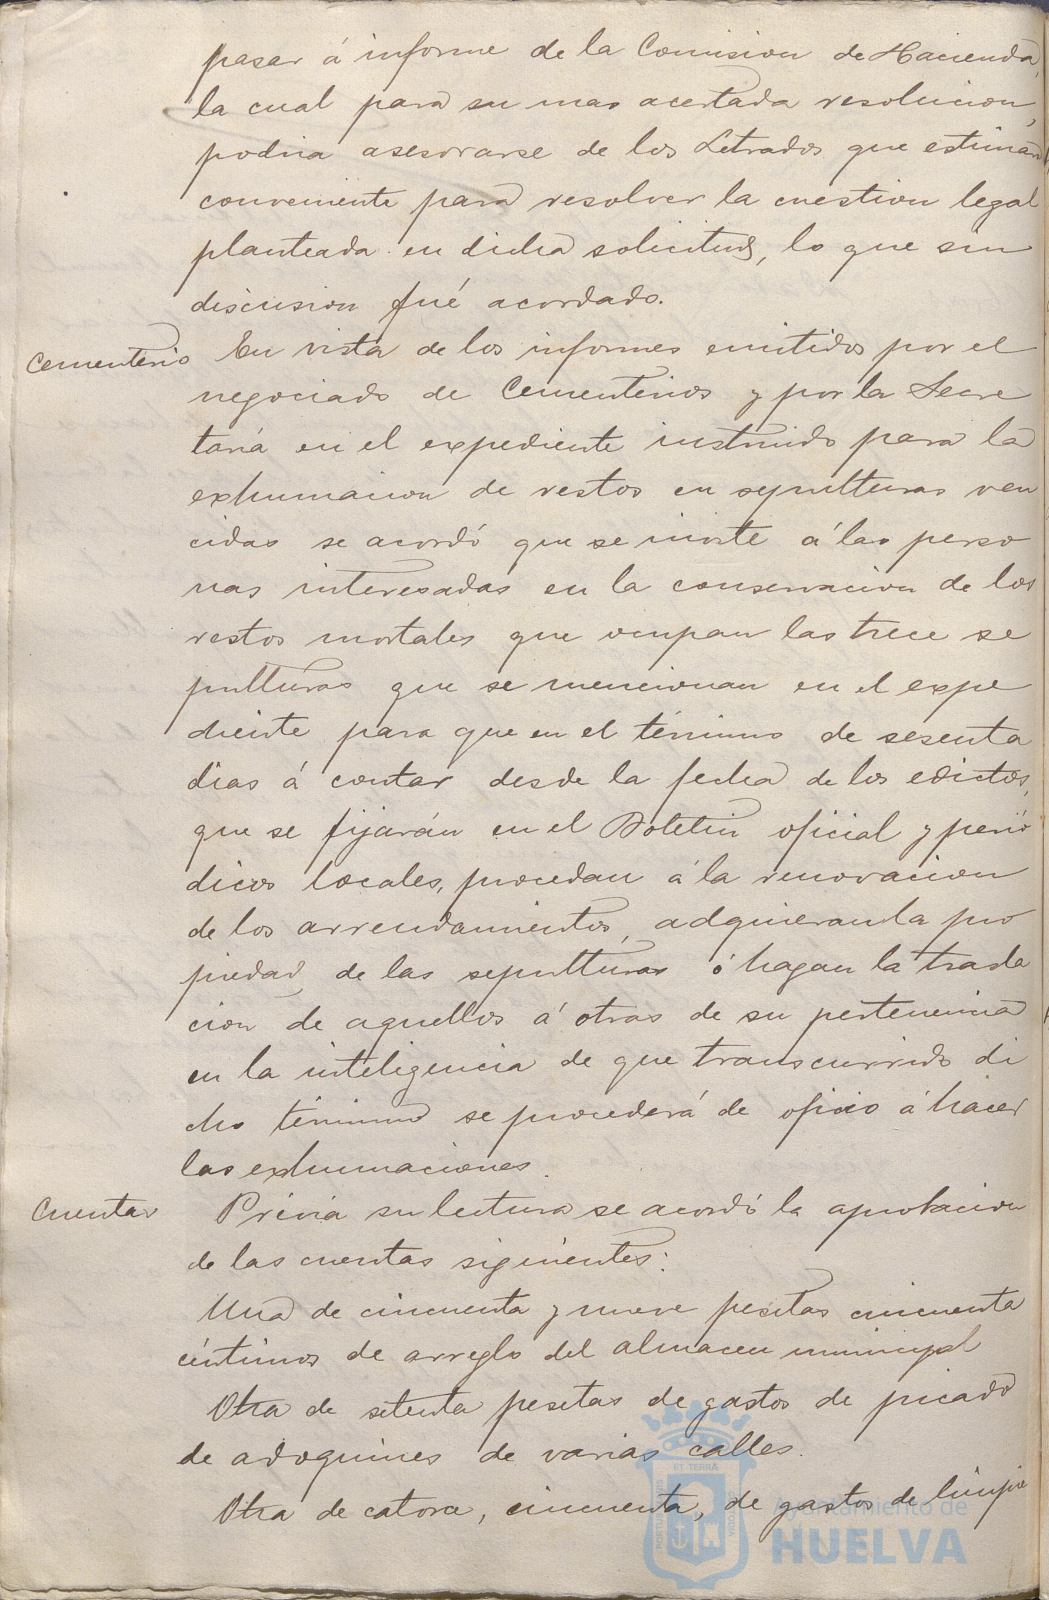 pasar á informe de la Comision de Hacienda,
la cual para su mas acertada resolucion,
podria asesorarse de los Letrados que estimara
conveniente para resolver la cuestion legal
planteada en dicha solicitud, lo que sin
discusion fué acordado.
Cementerio
En vista de los informes emitidos por el
negociado de Cementerios y por la Secre
taria en el expediente instruido para la
exhumacion de restos en sepulturas ven
cidas se acordó que se invite á las perso
nas interesadas en la conservacion de los
restos mortales que ocupan las trece se
pulturas que se mencionan en el expe
diente para que en el término de sesenta
dias á contar desde la fecha de los edictos,
que se fijarán en el Boletin oficial y perió
dicos locales, procedan á la renovacion
de los arrendamientos, adquieran la pro
piedad de las sepulturas ó hagan la trasla
cion de aquellos á otras de su pertenencia
en la inteligencia de que transcurrido di
cho término se procederá de oficio á hacer
las exhumaciones.
Cuentas
Prévia su lectura se acordó la aprobacion
de las cuentas siguientes:
Una de cincuenta y nueve pesetas cincuenta
céntimos de arreglo del almacen municipal
Otra de setenta pesetas de gastos de picado
de adoquines de varias calles.
Otra de catorce, cincuenta, de gastos de limpie
Ayuntamiento de
HUELVA